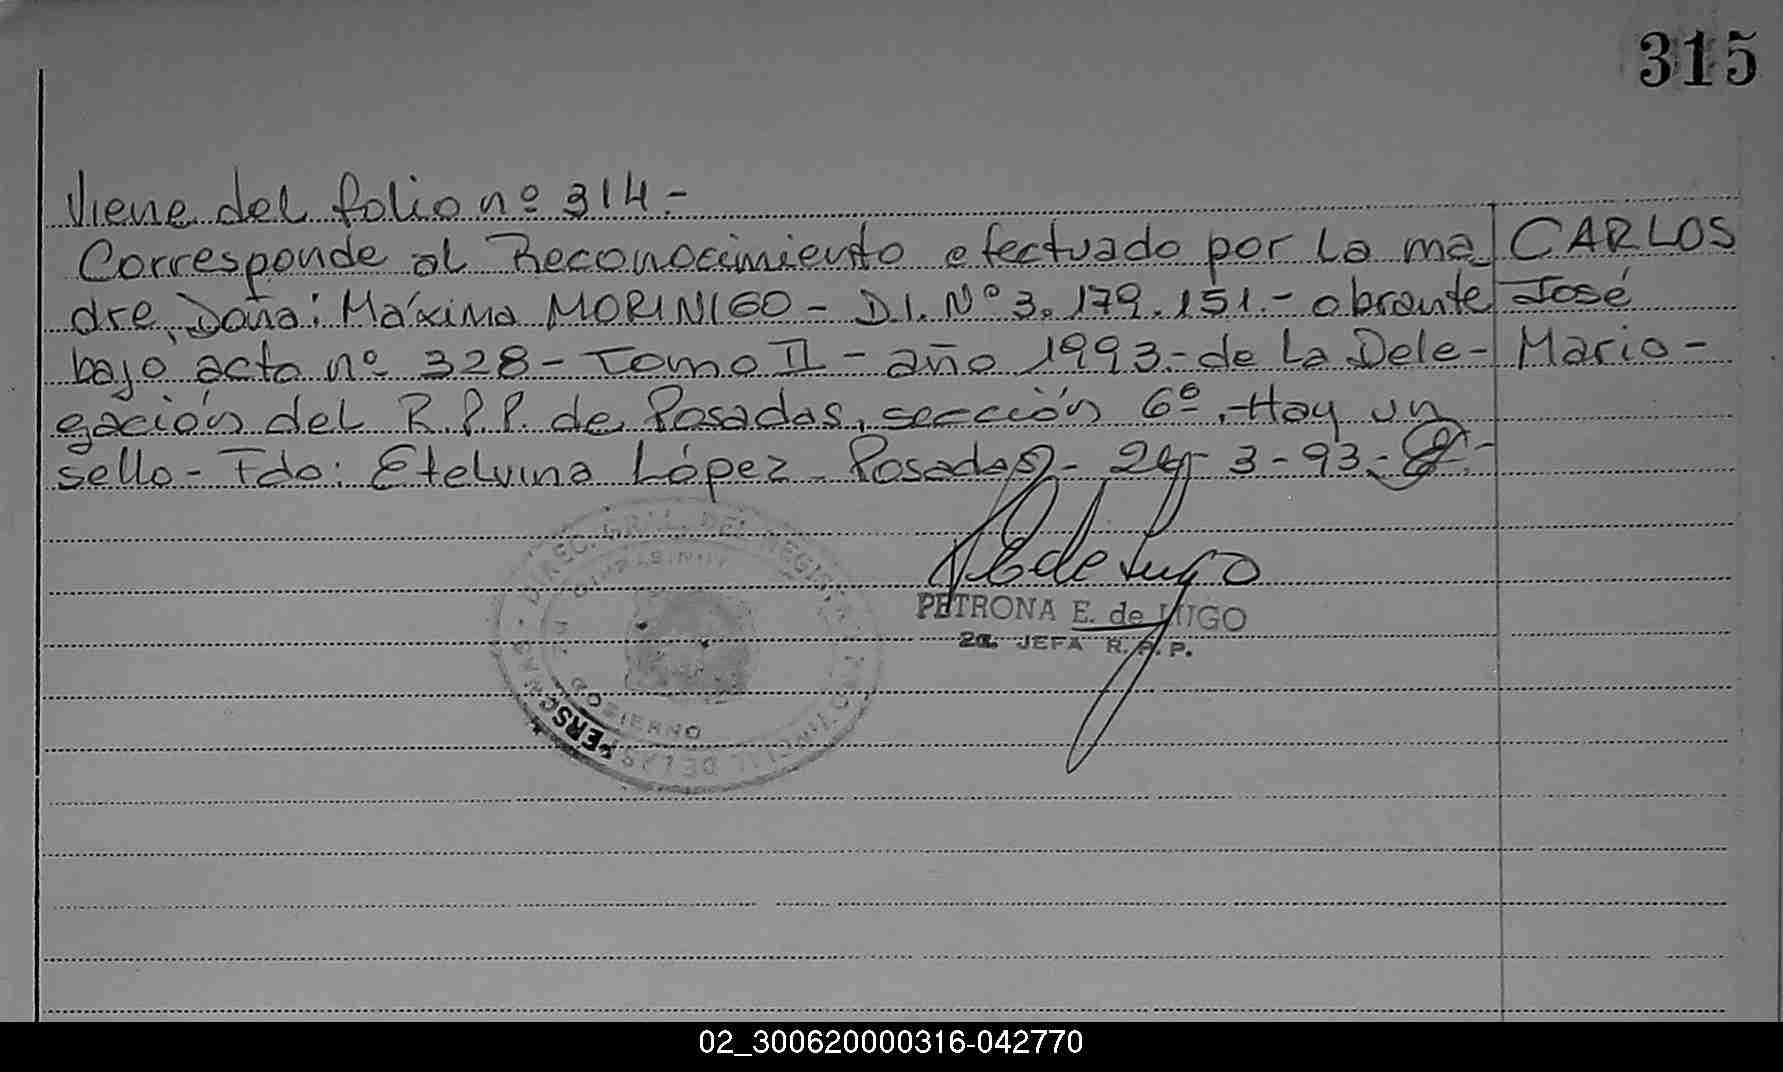 315
Viene del folio nº 314.-
Corresponde al Reconocimiento efectuado por la ma_
dre, Doña: Máxima MORINIGO - D.I. Nº 3.179.151.- obrante
bajo acta nº 328 - Tomo II - año 1993.- de la Dele-
gación del R.P.P. de Posadas, sección 6º.- Hay un
sello - Fdo: Etelvina López - Posadas - 24-3-93.-
CARLOS
José
Mario -
PETRONA E. de LUGO
2a. JEFA R.P.P.
DIREC. GRAL. DEL REGISTRO PROVINCIAL DE LAS PERSONAS
GOBIERNO
02_300620000316-042770